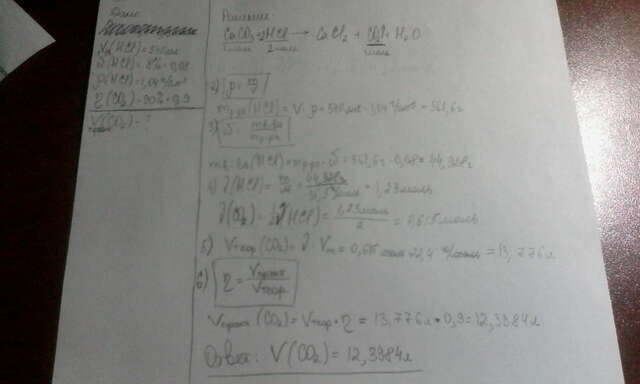 Дано:
V(HCl)=540мл
ω(HCl)=8%=0,08
ρ(HCl)=1,04г/см³
η(CO₂)=90%=0,9
V практ (CO₂)-?
Решение
CaCO₃+2HCl → CaCl₂ + CO₂↑ + H₂O
1моль 2моль 1моль
2) ρ=m/V
m р-ра (HCl)=V·ρ=540мл·1,04г/см³=561,6г
3) ω=m в-ва/m р-ра
m в-ва(HCl)=m р-ра·ω=561,6г·0,08=44,928г
4) ν(HCl)=m/M=44,928г/36,5г/моль=1,23моль
ν(CO₂)=½ν(HCl)=1,23моль/2=0,615моль
5) V теор (CO₂)=ν·Vm=0,615моль·22,4л/моль=13,776л
6) η=V практ/V теор
V практ (CO₂)=V теор·η=13,776л·0,9=12,3984л
Ответ: V(CO₂)=12,3984л